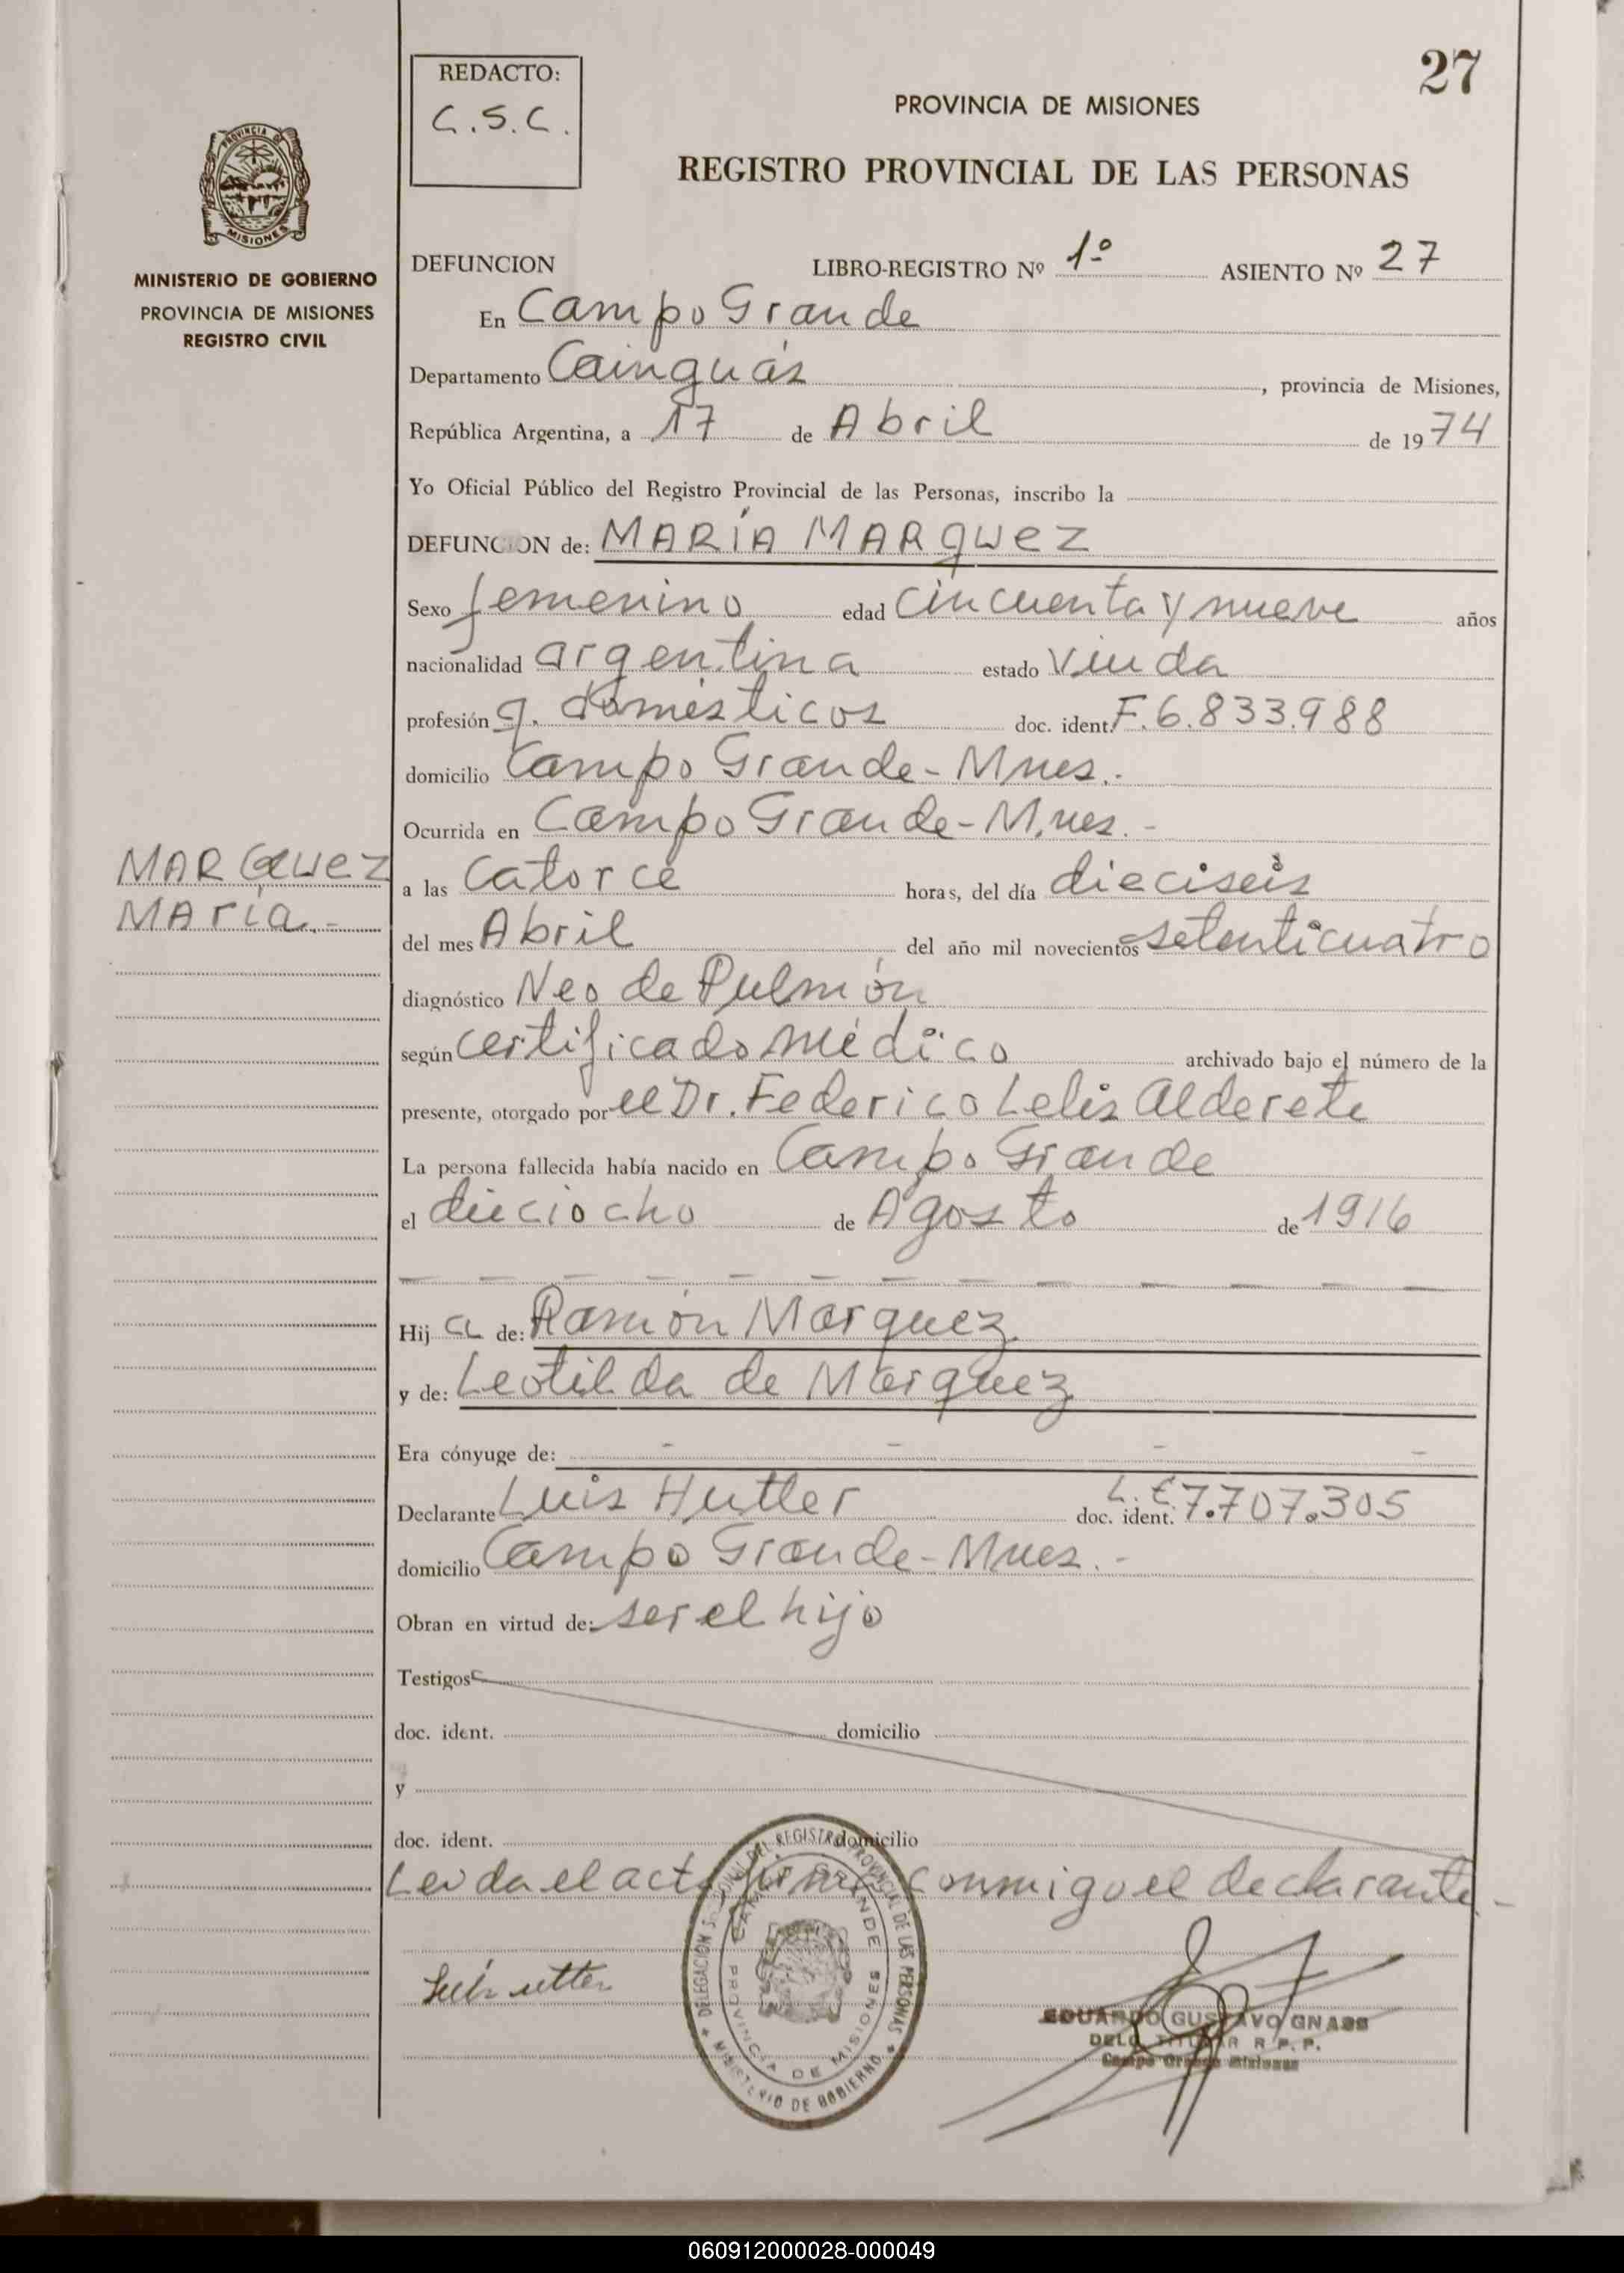 27
REDACTO:
C.S.C.
PROVINCIA DE MISIONES
REGISTRO PROVINCIAL DE LAS PERSONAS
PROVINCIA DE
MISIONES
MINISTERIO DE GOBIERNO
PROVINCIA DE MISIONES
REGISTRO CIVIL
DEFUNCION LIBRO-REGISTRO Nº 1º ASIENTO Nº 27
En Campo Grande
Departamento Cainguás, provincia de Misiones,
República Argentina, a 17 de Abril de 1974
Yo Oficial Público del Registro Provincial de las Personas, inscribo la
DEFUNCION de: MARÍA MARquez
Sexo femenino edad cincuenta y nueve años
nacionalidad argentina estado viuda
profesión q. domésticos doc. ident. F.6.833.988
domicilio Campo Grande-Mnes.-
Ocurrida en Campo Grande-Mnes.-
MARQueZ
MAría.-
a las catorce horas, del día dieciseis
del mes Abril del año mil novecientos setenticuatro
diagnóstico Neo de Pulmón
según certificado médico archivado bajo el número de la
presente, otorgado por el Dr. Federico Lelis Alderete
La persona fallecida había nacido en Campo Grande
el dieciocho de Agosto de 1916
Hija de: Ramón Marquez
y de: Leotilda de Marquez
Era cónyuge de: - - - -
Declarante Luis Hutler doc. ident. L.E 7.707.305
domicilio Campo Grande-Mnes.-
Obran en virtud de: ser el hijo
Testigos
doc. ident. domicilio
y
doc. ident. domicilio
Leida el acta firma conmigo el declarante.-
DELEGACION DEL REGISTRO PROVINCIAL DE LAS PERSONAS
MINISTERIO DE GOBIERNO
CAMPO GRANDE
PROVINCIA DE MISIONES
EDUARDO GUSTAVO GNASS
DELG. TITULAR R.P.P.
Campo Grande Misiones
060912000028-000049